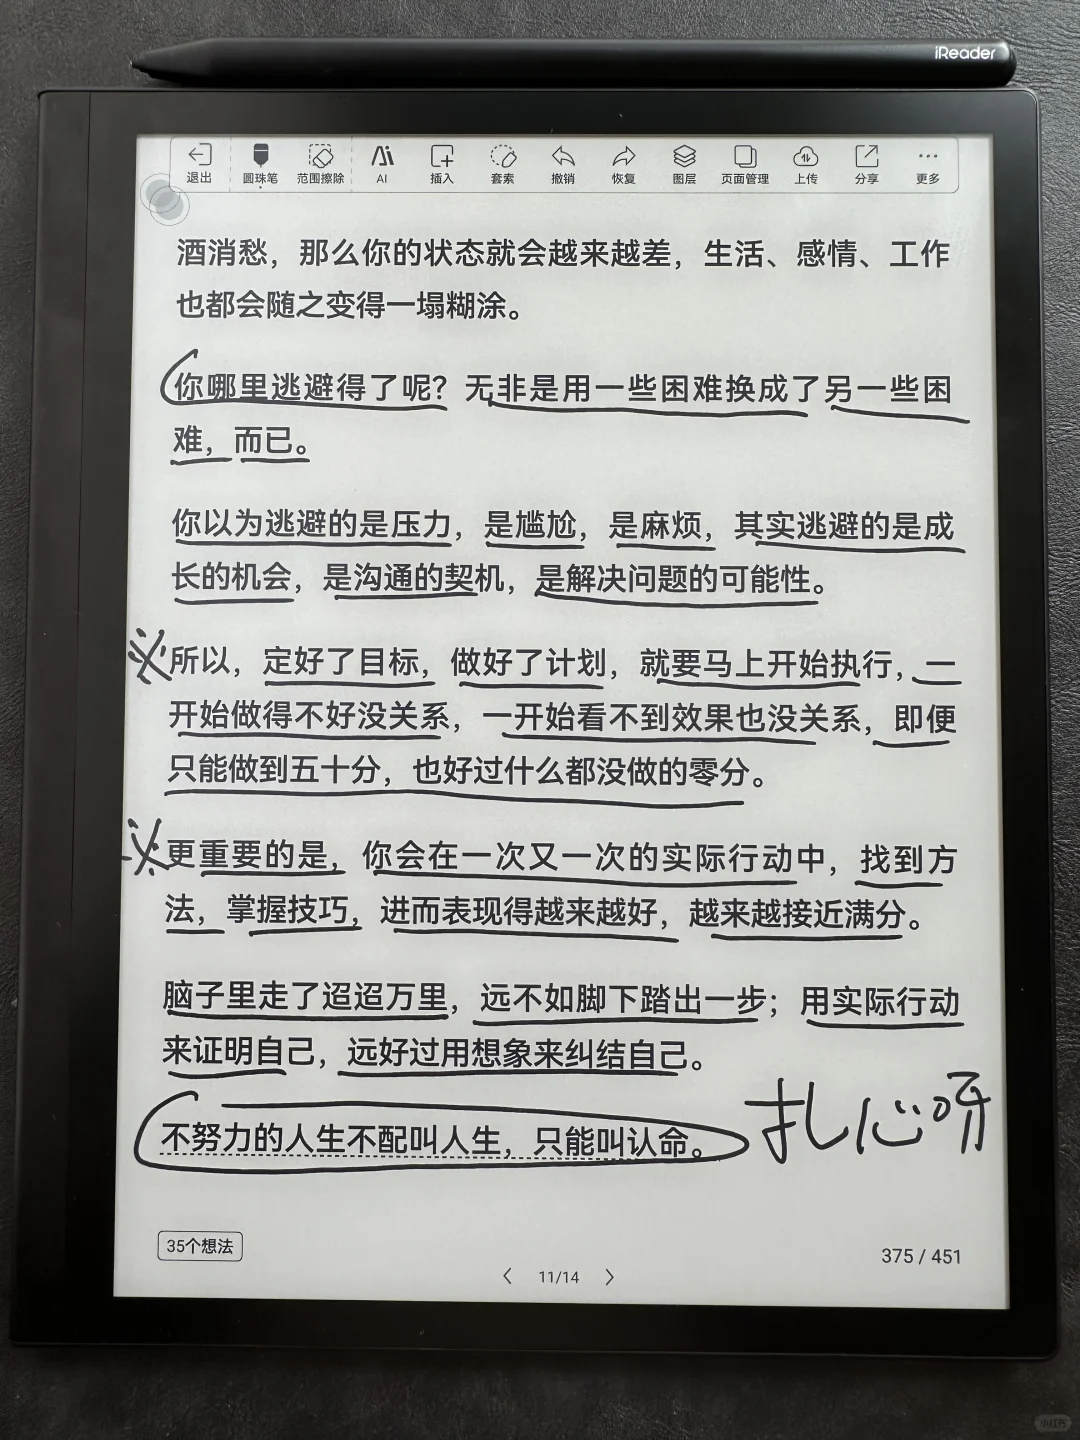 iReader
退出 圆珠笔 范围擦除 AI 插入 套索 撤销 恢复 图层 页面管理 上传 分享 更多
酒消愁，那么你的状态就会越来越差，生活、感情、工作
也都会随之变得一塌糊涂。
你哪里逃避得了呢？无非是用一些困难换成了另一些困
难，而已。
你以为逃避的是压力，是尴尬，是麻烦，其实逃避的是成
长的机会，是沟通的契机，是解决问题的可能性。
所以，定好了目标，做好了计划，就要马上开始执行，一
开始做得不好没关系，一开始看不到效果也没关系，即便
只能做到五十分，也好过什么都没做的零分。
更重要的是，你会在一次又一次的实际行动中，找到方
法，掌握技巧，进而表现得越来越好，越来越接近满分。
脑子里走了迢迢万里，远不如脚下踏出一步；用实际行动
来证明自己，远好过用想象来纠结自己。
不努力的人生不配叫人生，只能叫认命。
扎心呀
35个想法
375 / 451
11/14
小红书